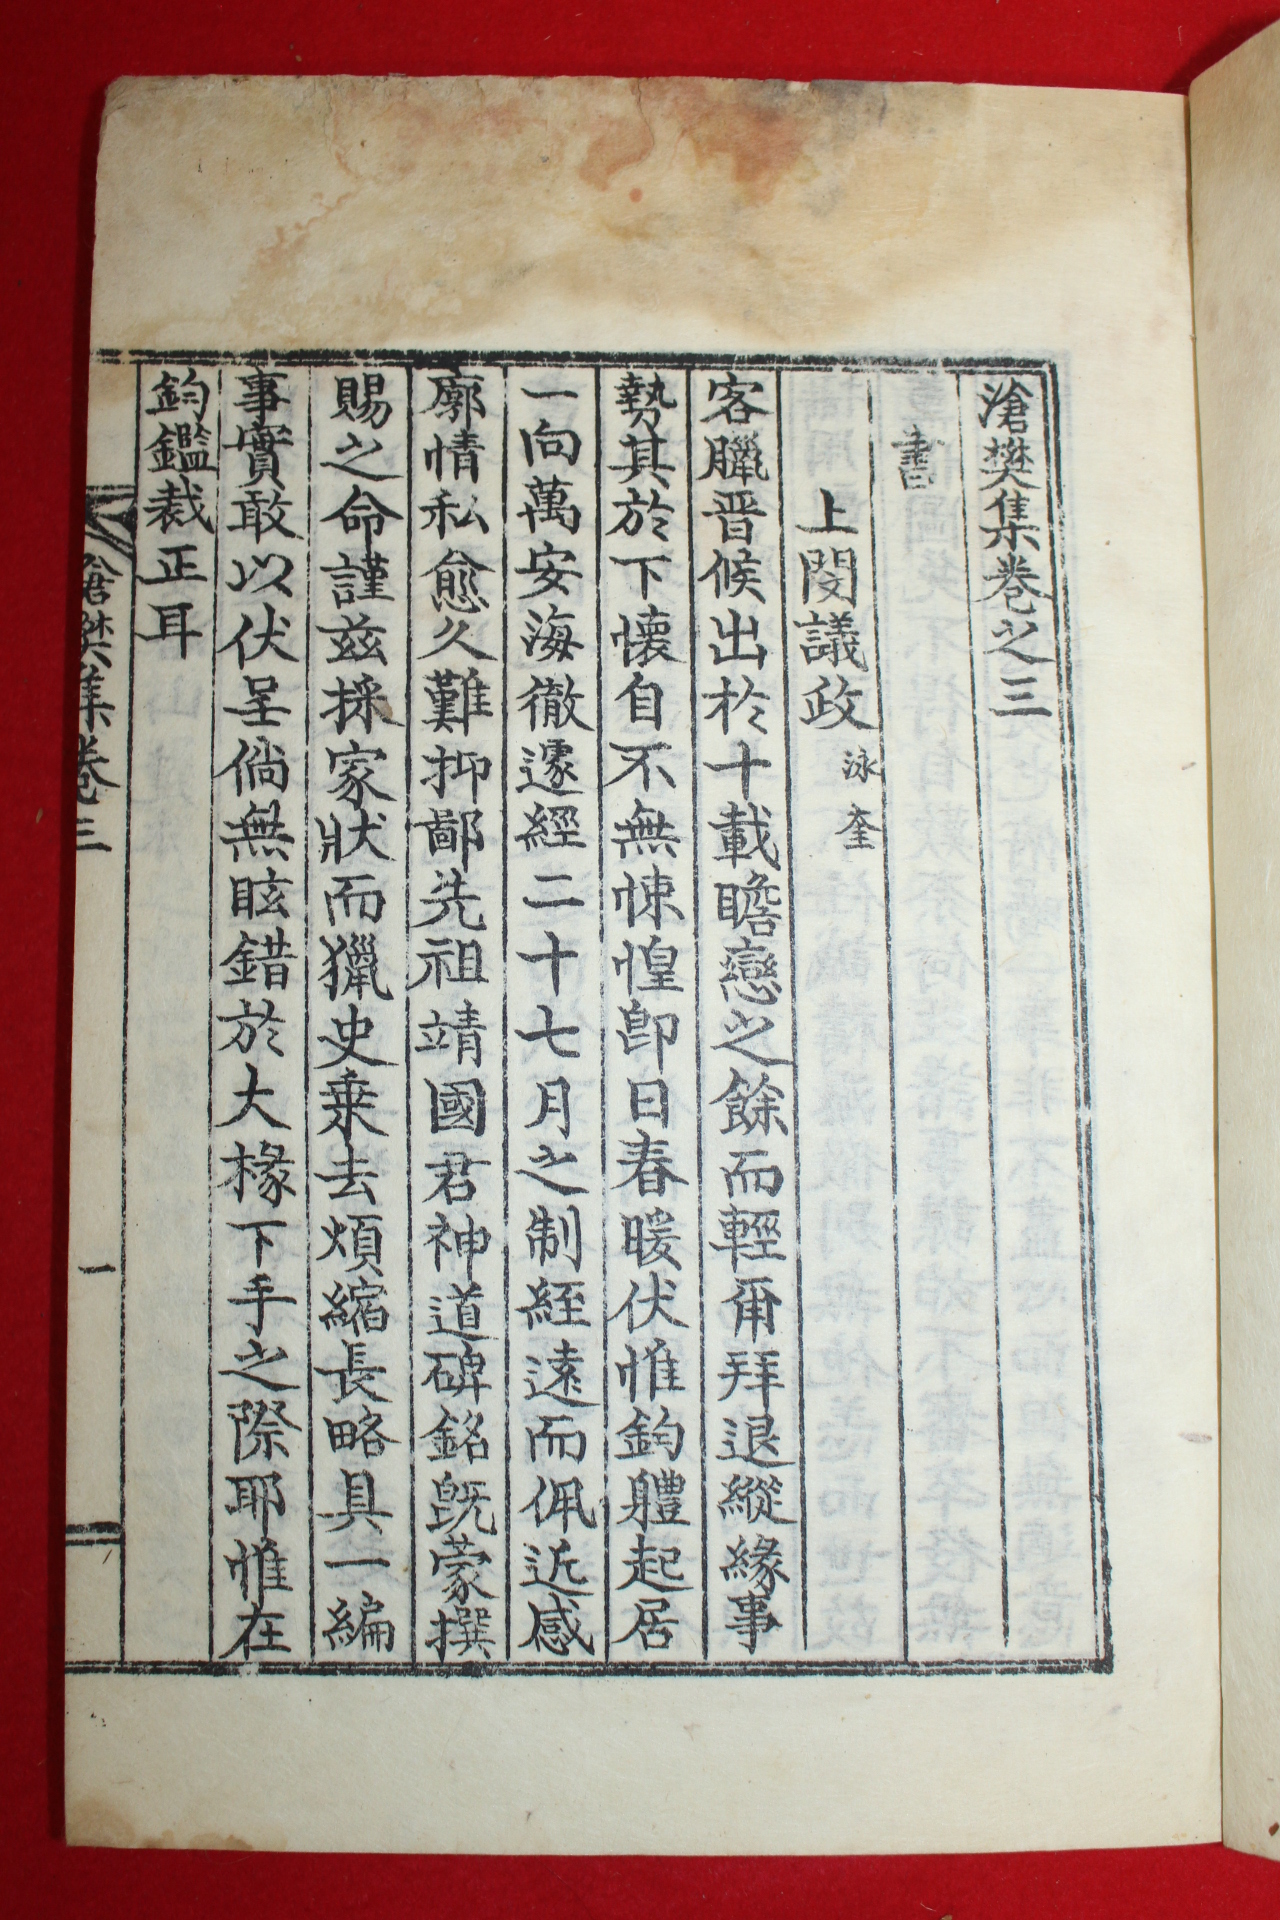 滄樊集卷之三
書
上閔議政泳奎
客臘晋候出於十載瞻戀之餘而輕爾拜退縱緣事
勢其於下懷自不無悚惶卽日春暖伏惟鈞軆起居
一向萬安海徹遽經二十七月之制絰遠而佩近感
廓情私愈久難抑鄙先祖靖國君神道碑銘旣蒙撰
賜之命謹玆採家狀而獵史乘去煩縮長略具一編
事實敢以伏呈倘無眩錯於大椽下手之際耶惟在
鈞鑑裁正耳
滄樊集卷三
一